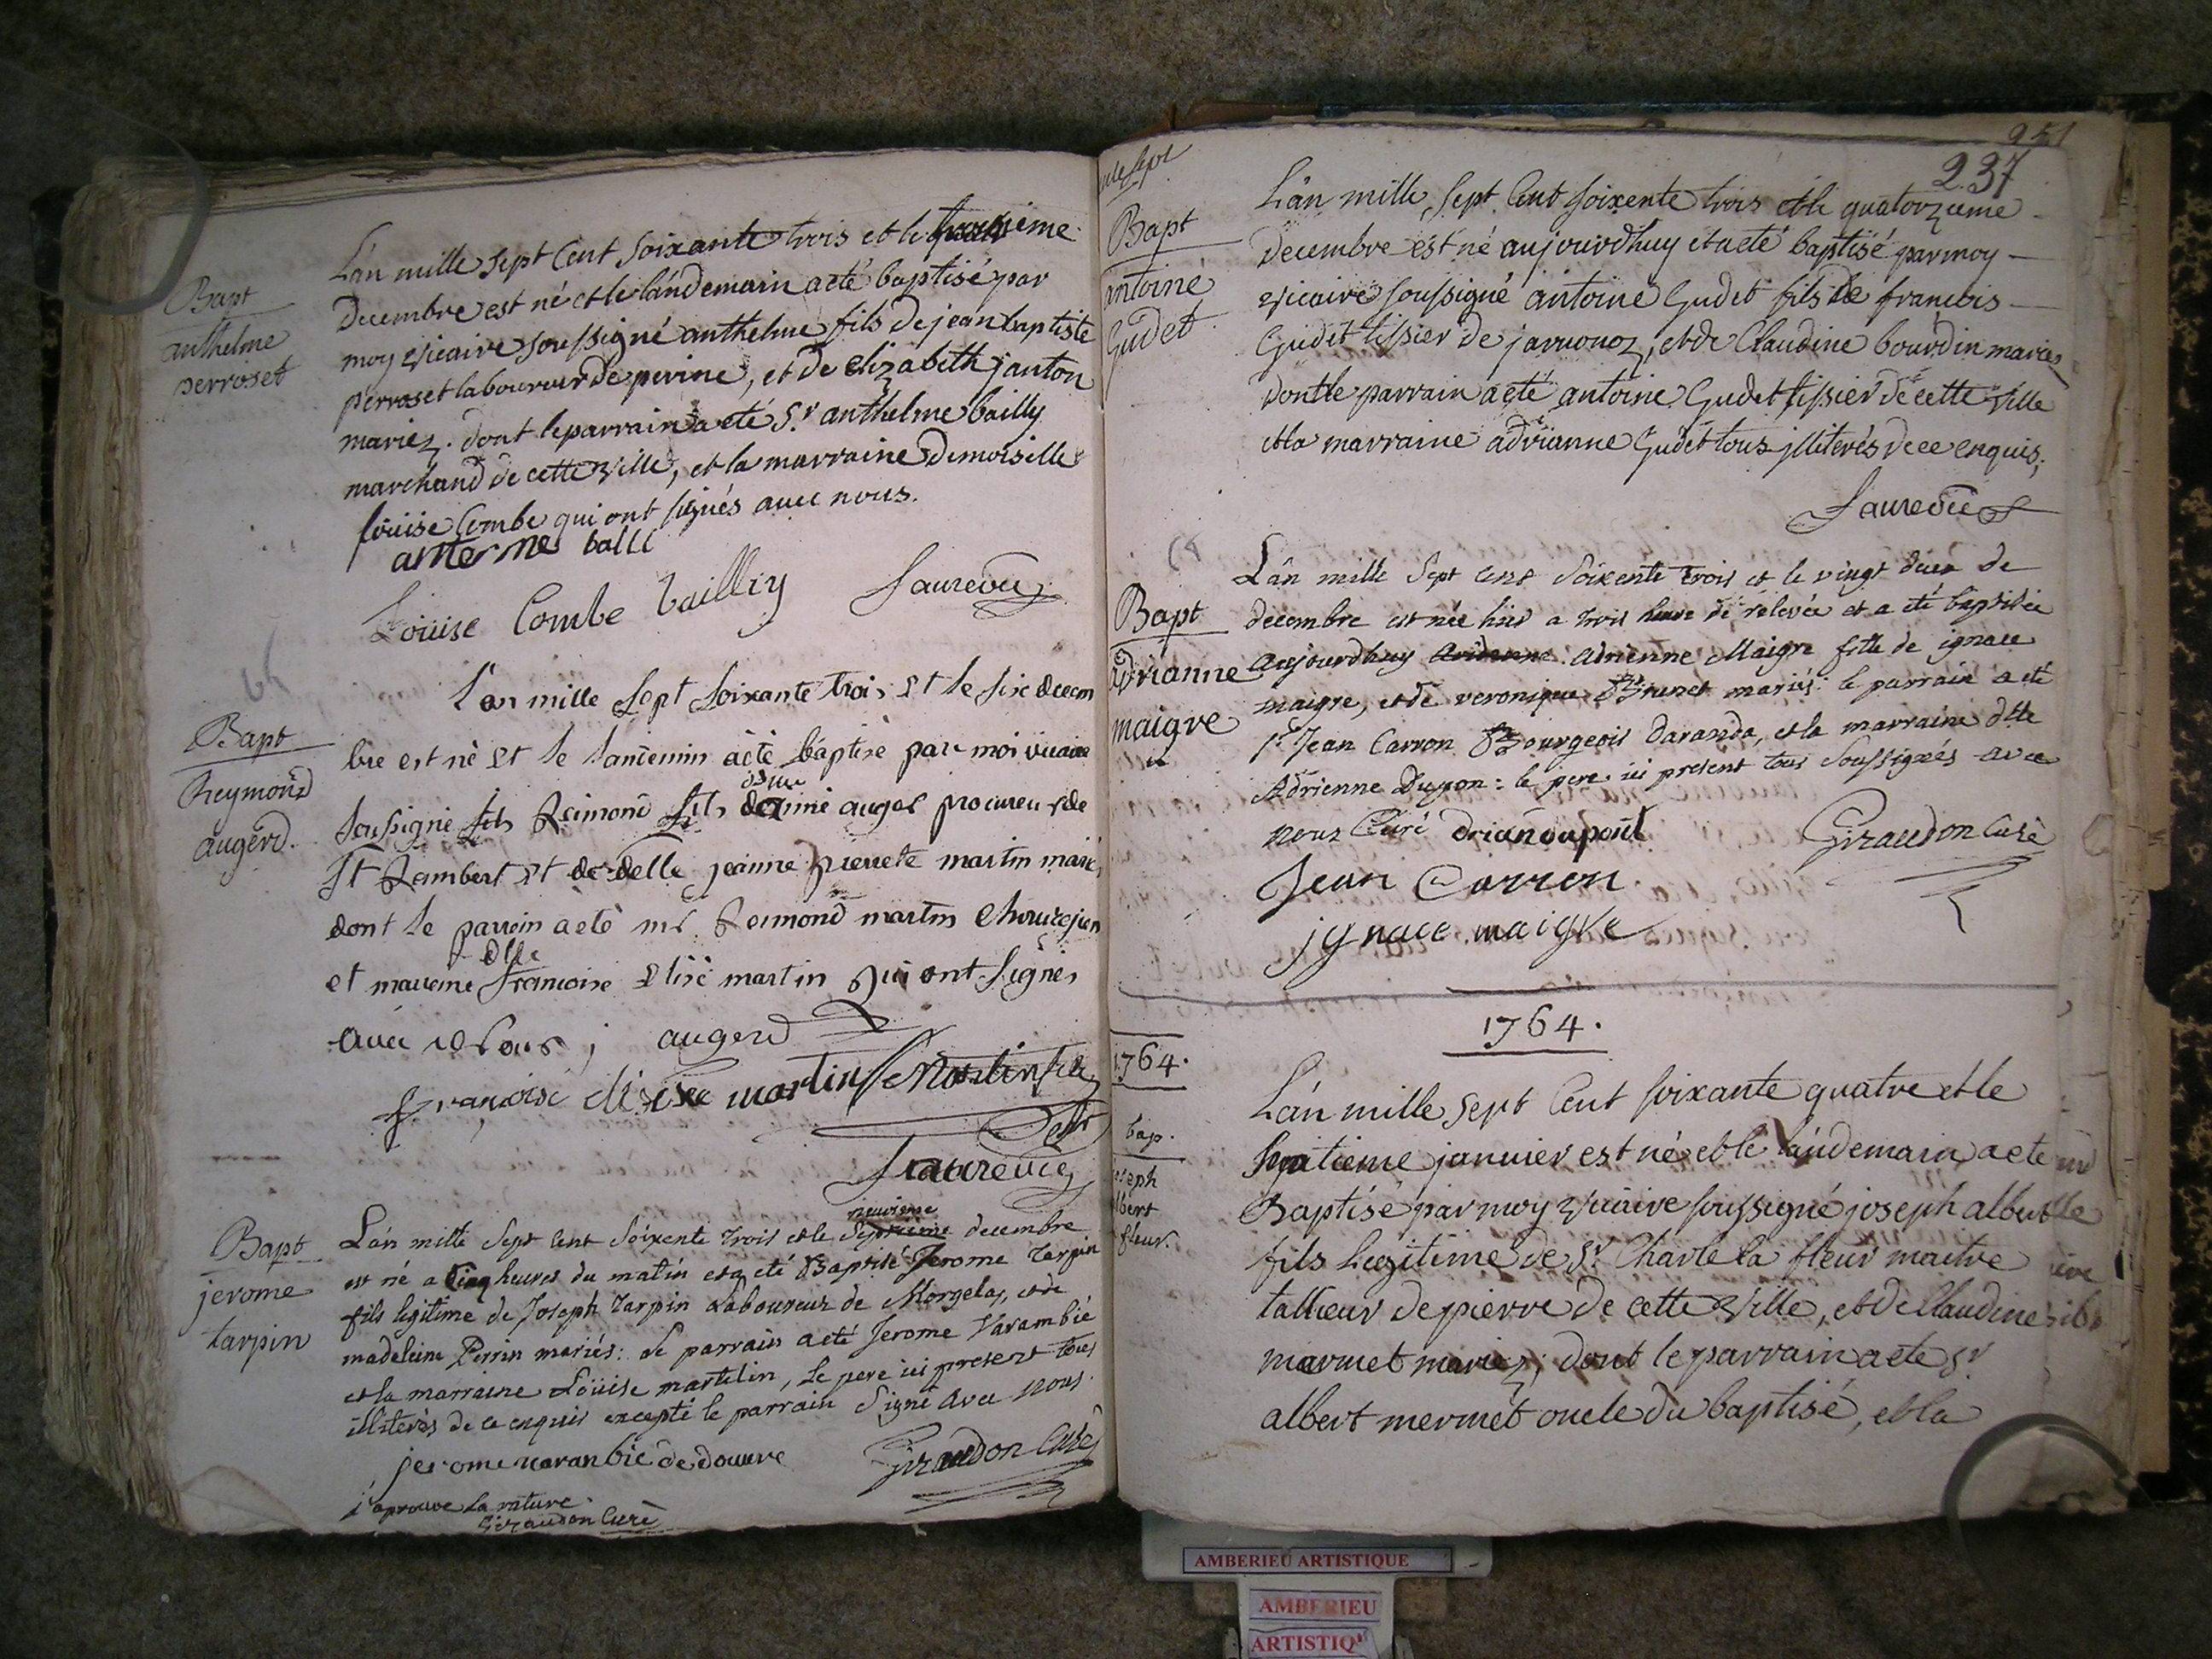 Bapt
anthelme
perroset
L'an mille sept Cent Soixante trois et le troisieme
Decembre est né et le landemain a eté baptisé par
moy vicaire soussigné anthelme fils de jean baptiste
perroset laboureur de perine, et de elizabeth janton
mariez. dont le parrain a eté Sr anthelme bailly
marchand de cette ville, et la marraine Demoiselle
louise Combe qui ont signés avec nous.
anterme balli
Louise Combe bailliy
Bapt
Reymond
augerd.
l'an mille sept soixante trois et le six decem
bre est né et le landemin a eté baptise par moi vicaire
soussigné fils Reimond fils
auger procureur de
St Rambert et de delle jeanne pierrete martin mariés
dont le parrein a eté mr Reimond martin
et mareine dlle francoise elisé martin qui ont signés
avec nous; augerd
francoise martin
Bapt
jerome
tarpin
L'an mille Sept Cent Soixente trois et le Septieme neuvieme decembre
est né a Cinq heures du matin et a eté Baptisé Jerome Tarpin
fils legitime de Joseph Tarpin Laboureur de Morgelas, et de
madeleine Perrin mariés: Le parrain a eté Jerome Varambié
et la marraine Loüise martelin, Le pere ici present tous
illiterés de ce enquis excepté le parrain Signé avec nous.
jerome varanbié de douvre Giraudon Curé
j'aprouve La rature.
Giraudon Curé
251
237
Bapt
antoine
Gudet
L'an mille Sept Cent soixente trois et le quatorzieme
Decembre est né aujourdhuy et a eté baptisé par moy
vicaire soussigné antoine Gudet fils de francois
Gudet tissier de jarmonoz, et de Claudine bourdin mariez
dont le parrain a eté antoine Gudet tissier de cette ville
et la marraine adrianne Gudet tous jlliterés de ce enquis;
Bapt
adrianne
maigre
L'an mille Sept Cent Soixente trois et le vingt deux de
decembre est née hier a trois heure de relevée et a eté baptisée
aujourdhuy adrienne Maigre fille de ignace
maigre, et de veronique Brunet mariés: le parrain a eté
Sr Jean Carron Bourgeois daranda, et la marraine dlle
Adrienne Dupon: le pere ici present tous Soussignés avec
nous Curé
Giraudon Curé
Jean Carron
jgnace maigre
1764.
1764.
bap.
joseph
albert
fleur.
L'an mille Sept Cent soixante quatre et le
septieme janvier est né et le landemain a eté
Baptisé par moy vicaire soussigné joseph albert
fils legitime de Sr Charle la fleur maitre
tallieur de pierre de cette ville, et de Claudine
marmet mariez; dont le parrain a eté Sr
albert mermet oncle du baptisé, et la
AMBERIEU ARTISTIQUE
AMBERIEU
ARTISTIQ